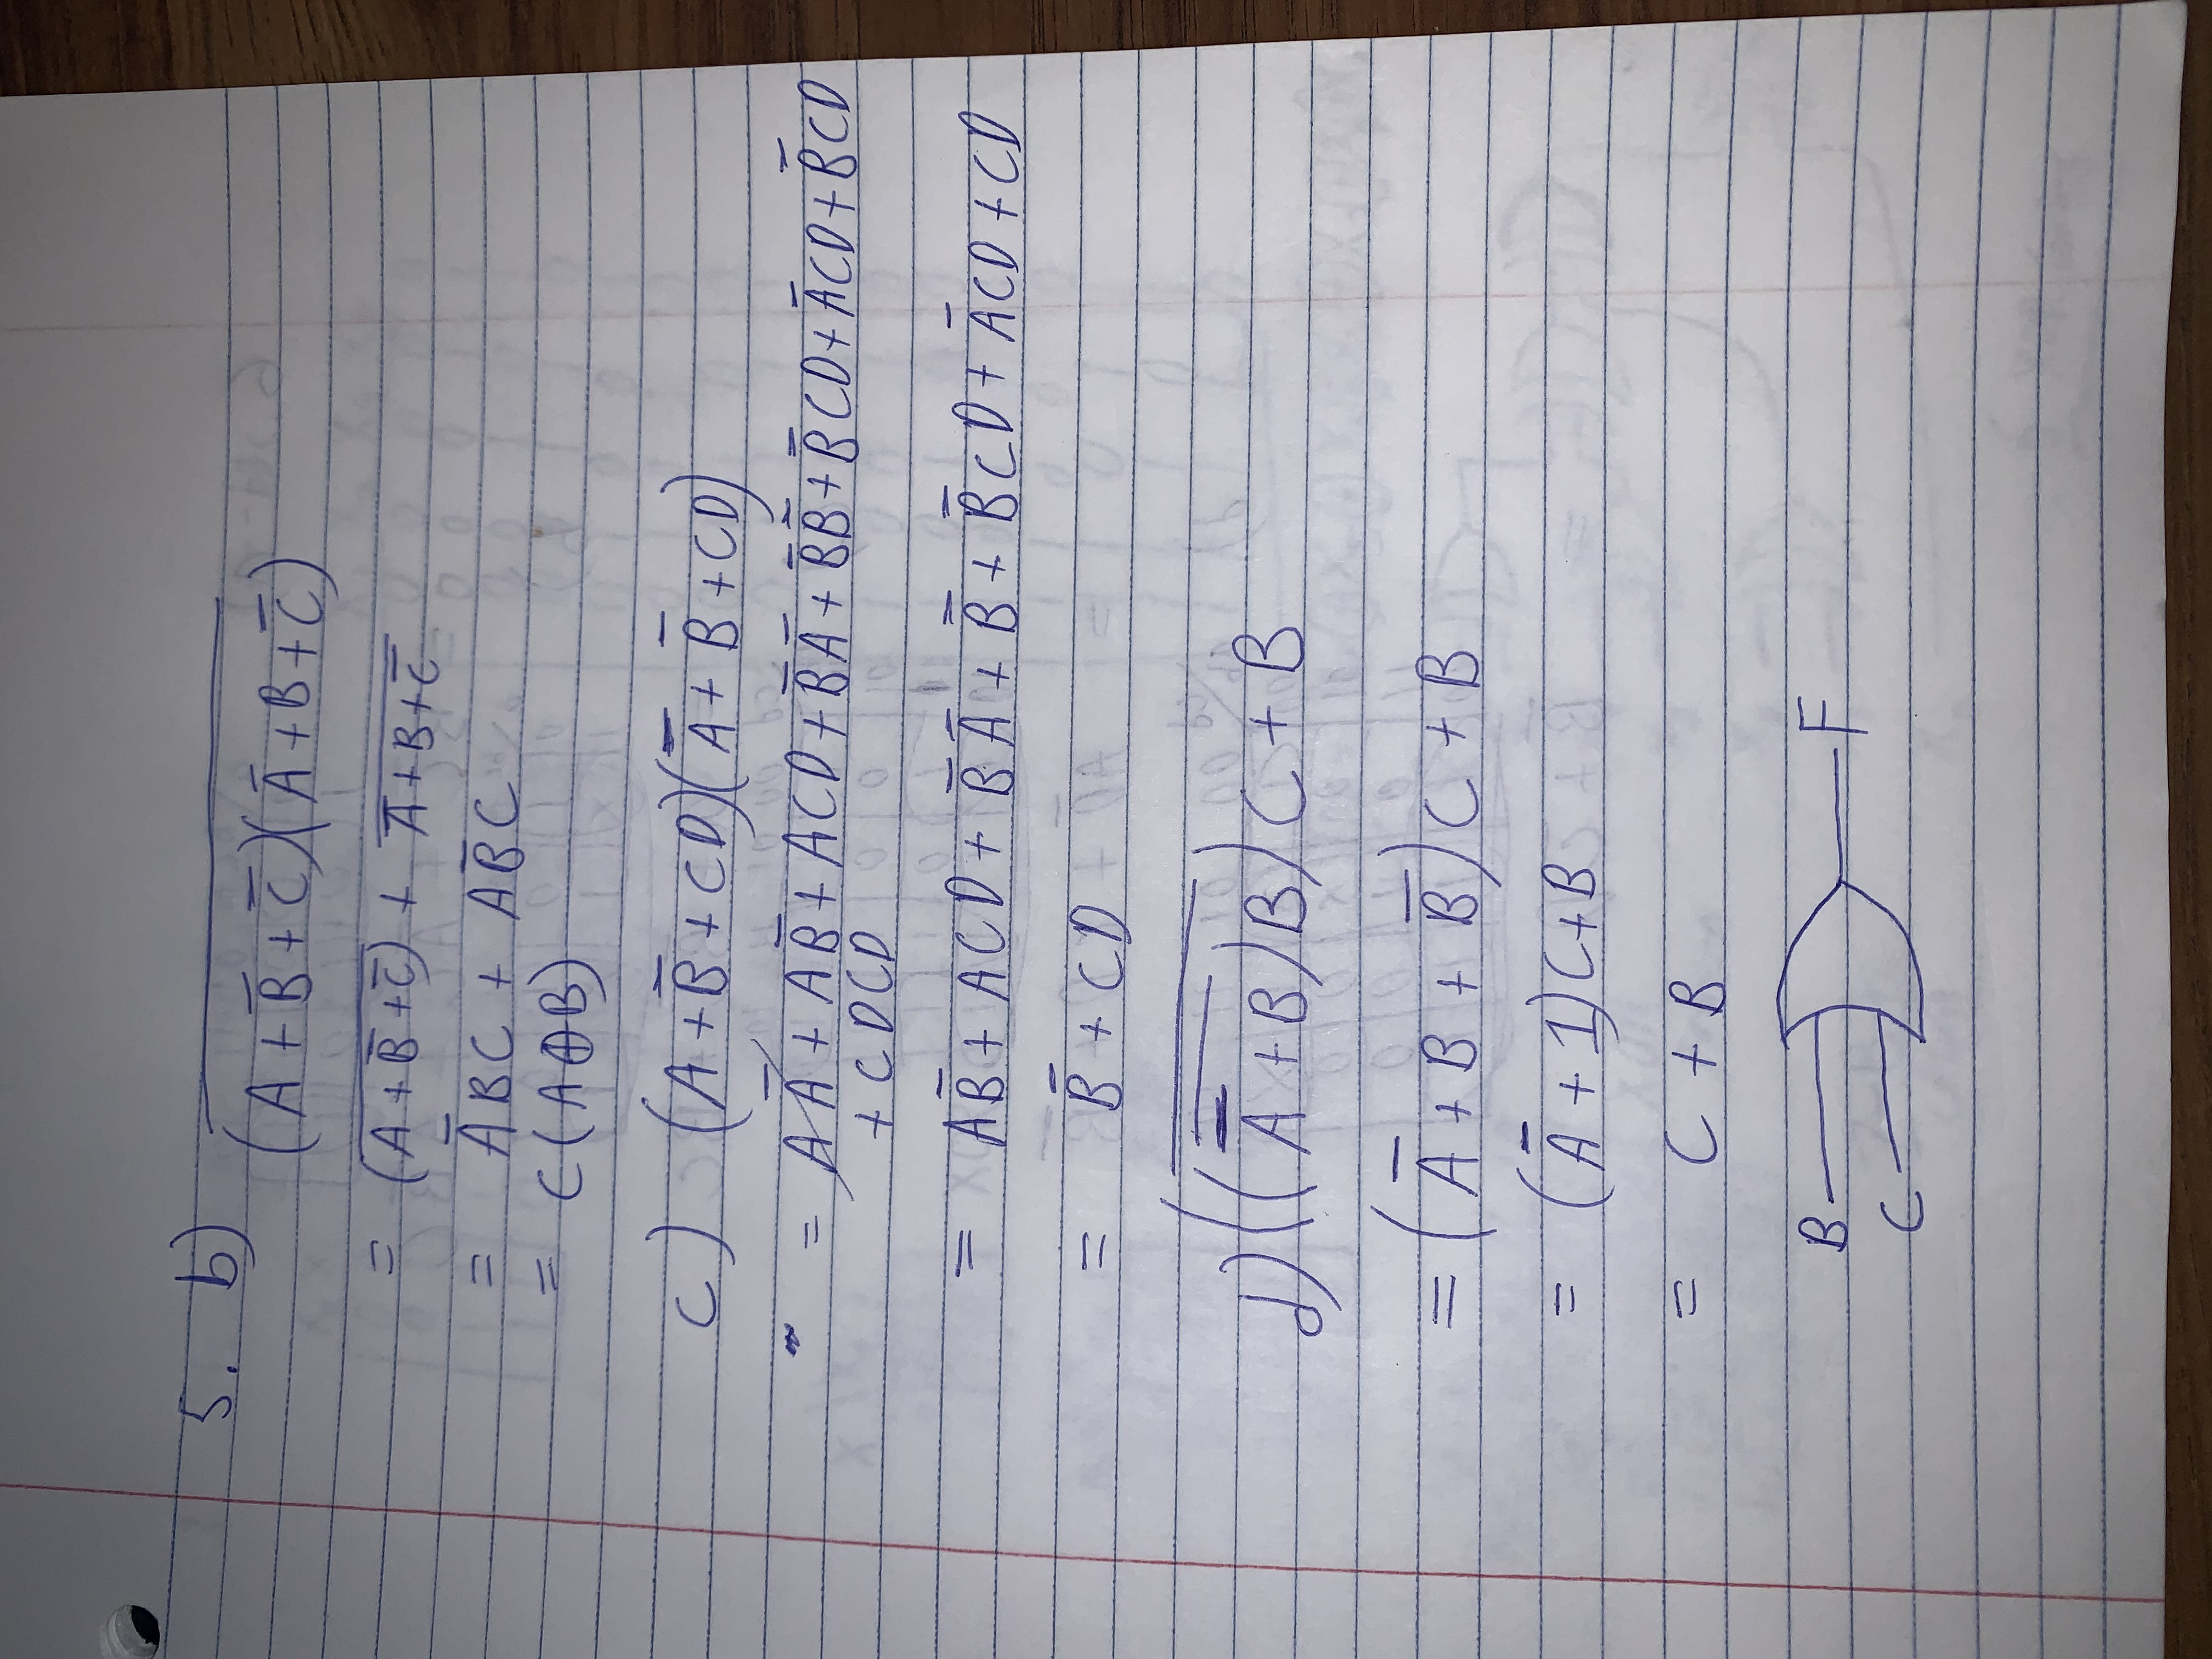 5. b) \overline{(A + \bar{B} + \bar{C})(\bar{A} + B + \bar{C})}
= \overline{(A + \bar{B} + \bar{C})} + \overline{\bar{A} + B + \bar{C}}
= \bar{A}BC + A\bar{B}C
= C(A⊕B)
c) (A + \bar{B} + CD)(\bar{A} + \bar{B} + CD)
= A\bar{A} + A\bar{B} + ACD + \bar{B}\bar{A} + \bar{B}\bar{B} + \bar{B}CD + \bar{A}CD + \bar{B}CD
+ CDCD
= A\bar{B} + ACD + \bar{B}\bar{A} + \bar{B} + \bar{B}CD + \bar{A}CD + CD
= \bar{B} + CD
d) (\overline{(\overline{\bar{A} + B})B})C + B
= (\bar{A} + B + \bar{B})C + B
= (\bar{A} + 1)C + B
= C + B
B F
C